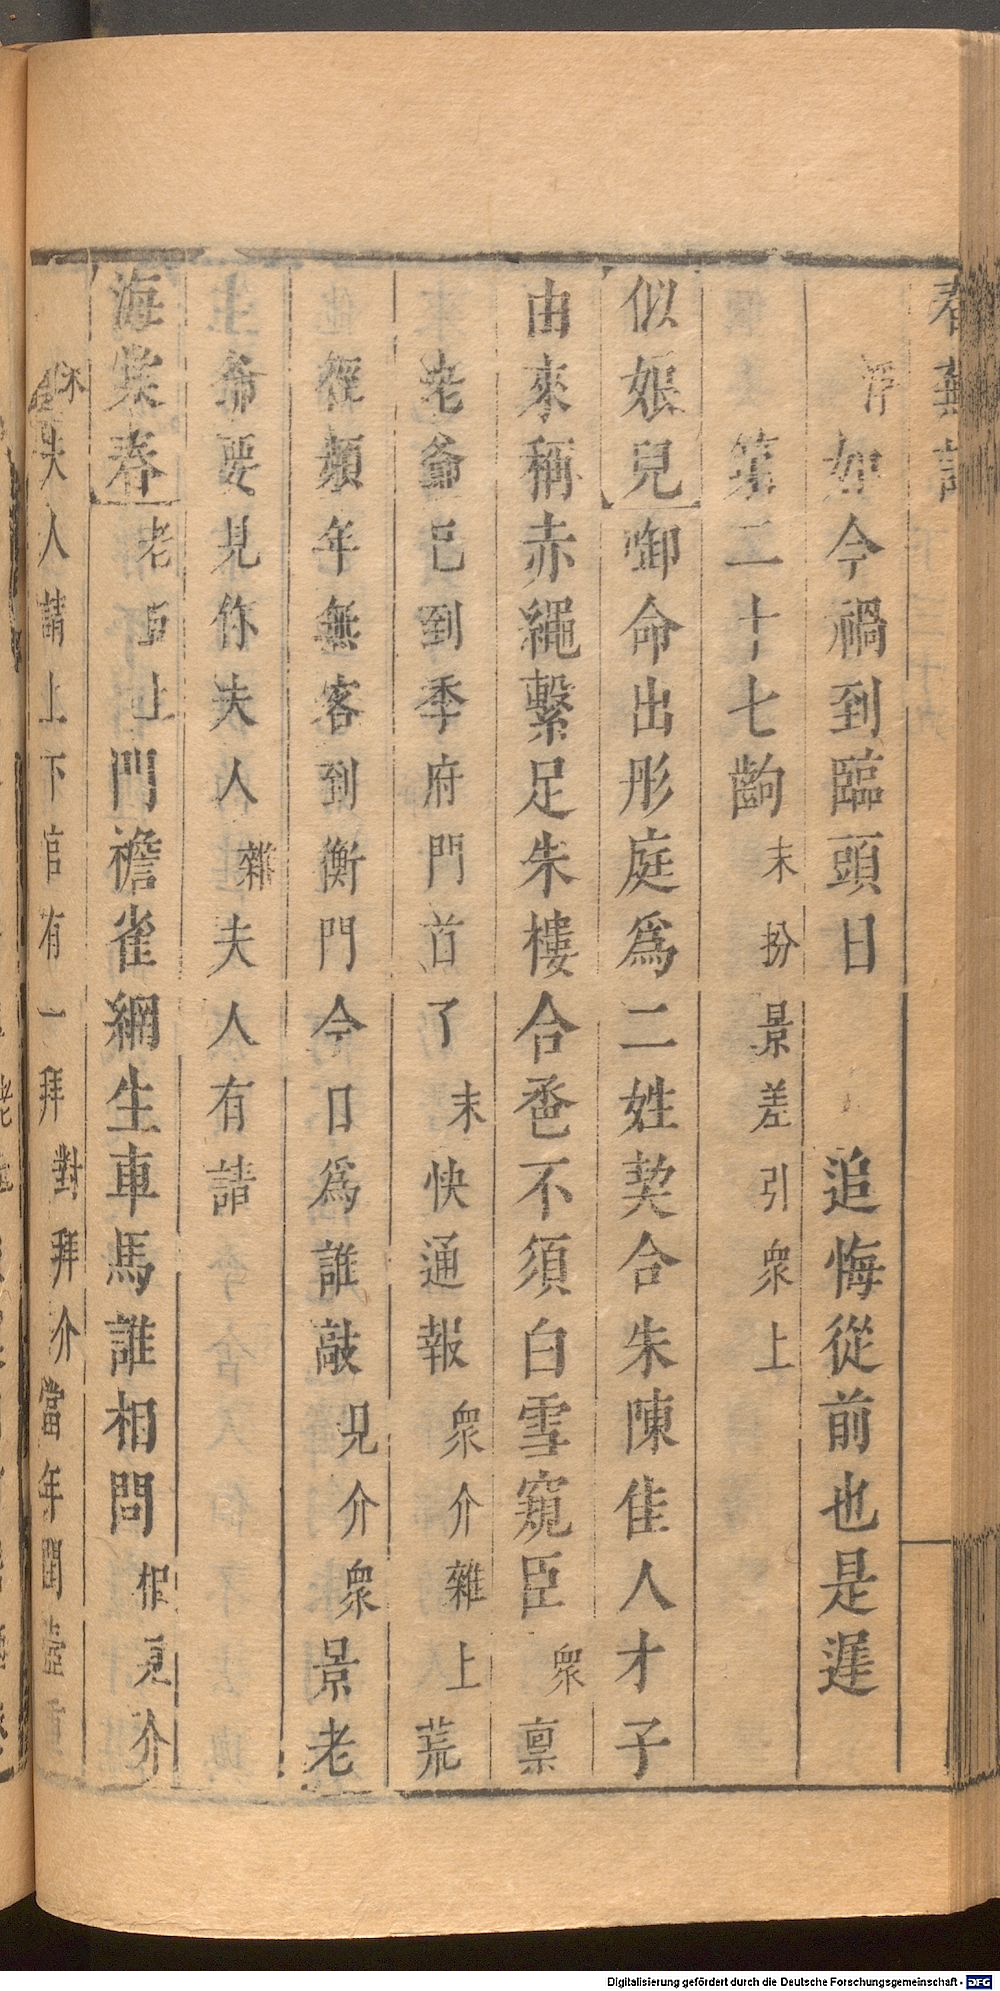 春蕪記
浮如今禍到臨頭日 追悔從前也是遲
第二十七齣末扮景差引衆上
似娘兒啣命出彤庭爲二姓契合朱陳佳人才子
由來稱赤繩繫足朱樓合卺不須白雪窺臣衆稟
老爺已到季府門首了末快通報衆介雜上荒
徑頻年無客到衡門今日爲誰敲見介衆景老
爺要見你夫人雜夫人有請
海棠春老旦上門襜雀網生車馬誰相問相見介
末夫人請上下官有一拜對拜介當年聞壺
Digitalisierung gefördert durch die Deutsche Forschungsgemeinschaft - DFG